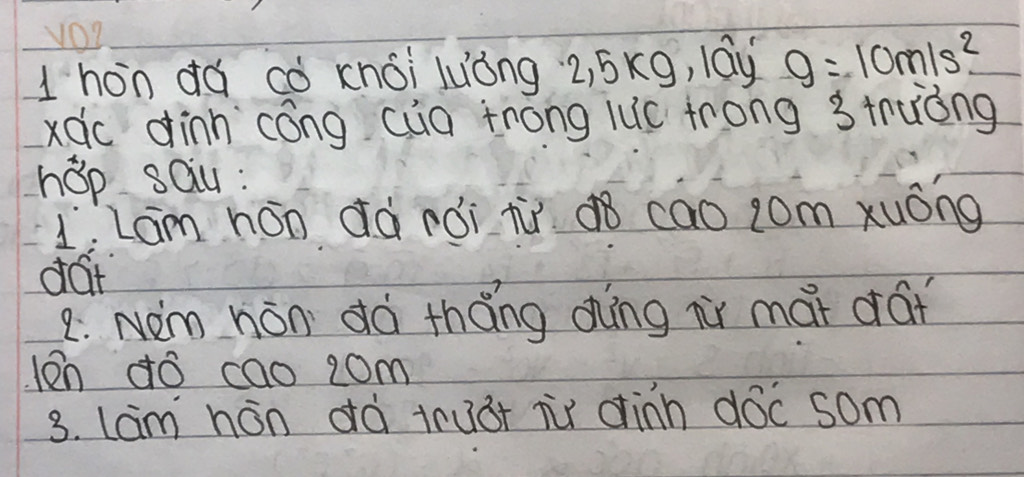 VD?
1 hòn đá có khối lượng 2,5kg, lấy g = 10m/s²
xác định công của trọng lực trong 3 trường
hợp sau:
1. Làm hòn đá rơi từ độ cao 20m xuống
đất
2. Ném hòn đá thẳng đứng từ mặt đất
lên độ cao 20m
3. Làm hòn đá trượt từ đỉnh dốc 50m